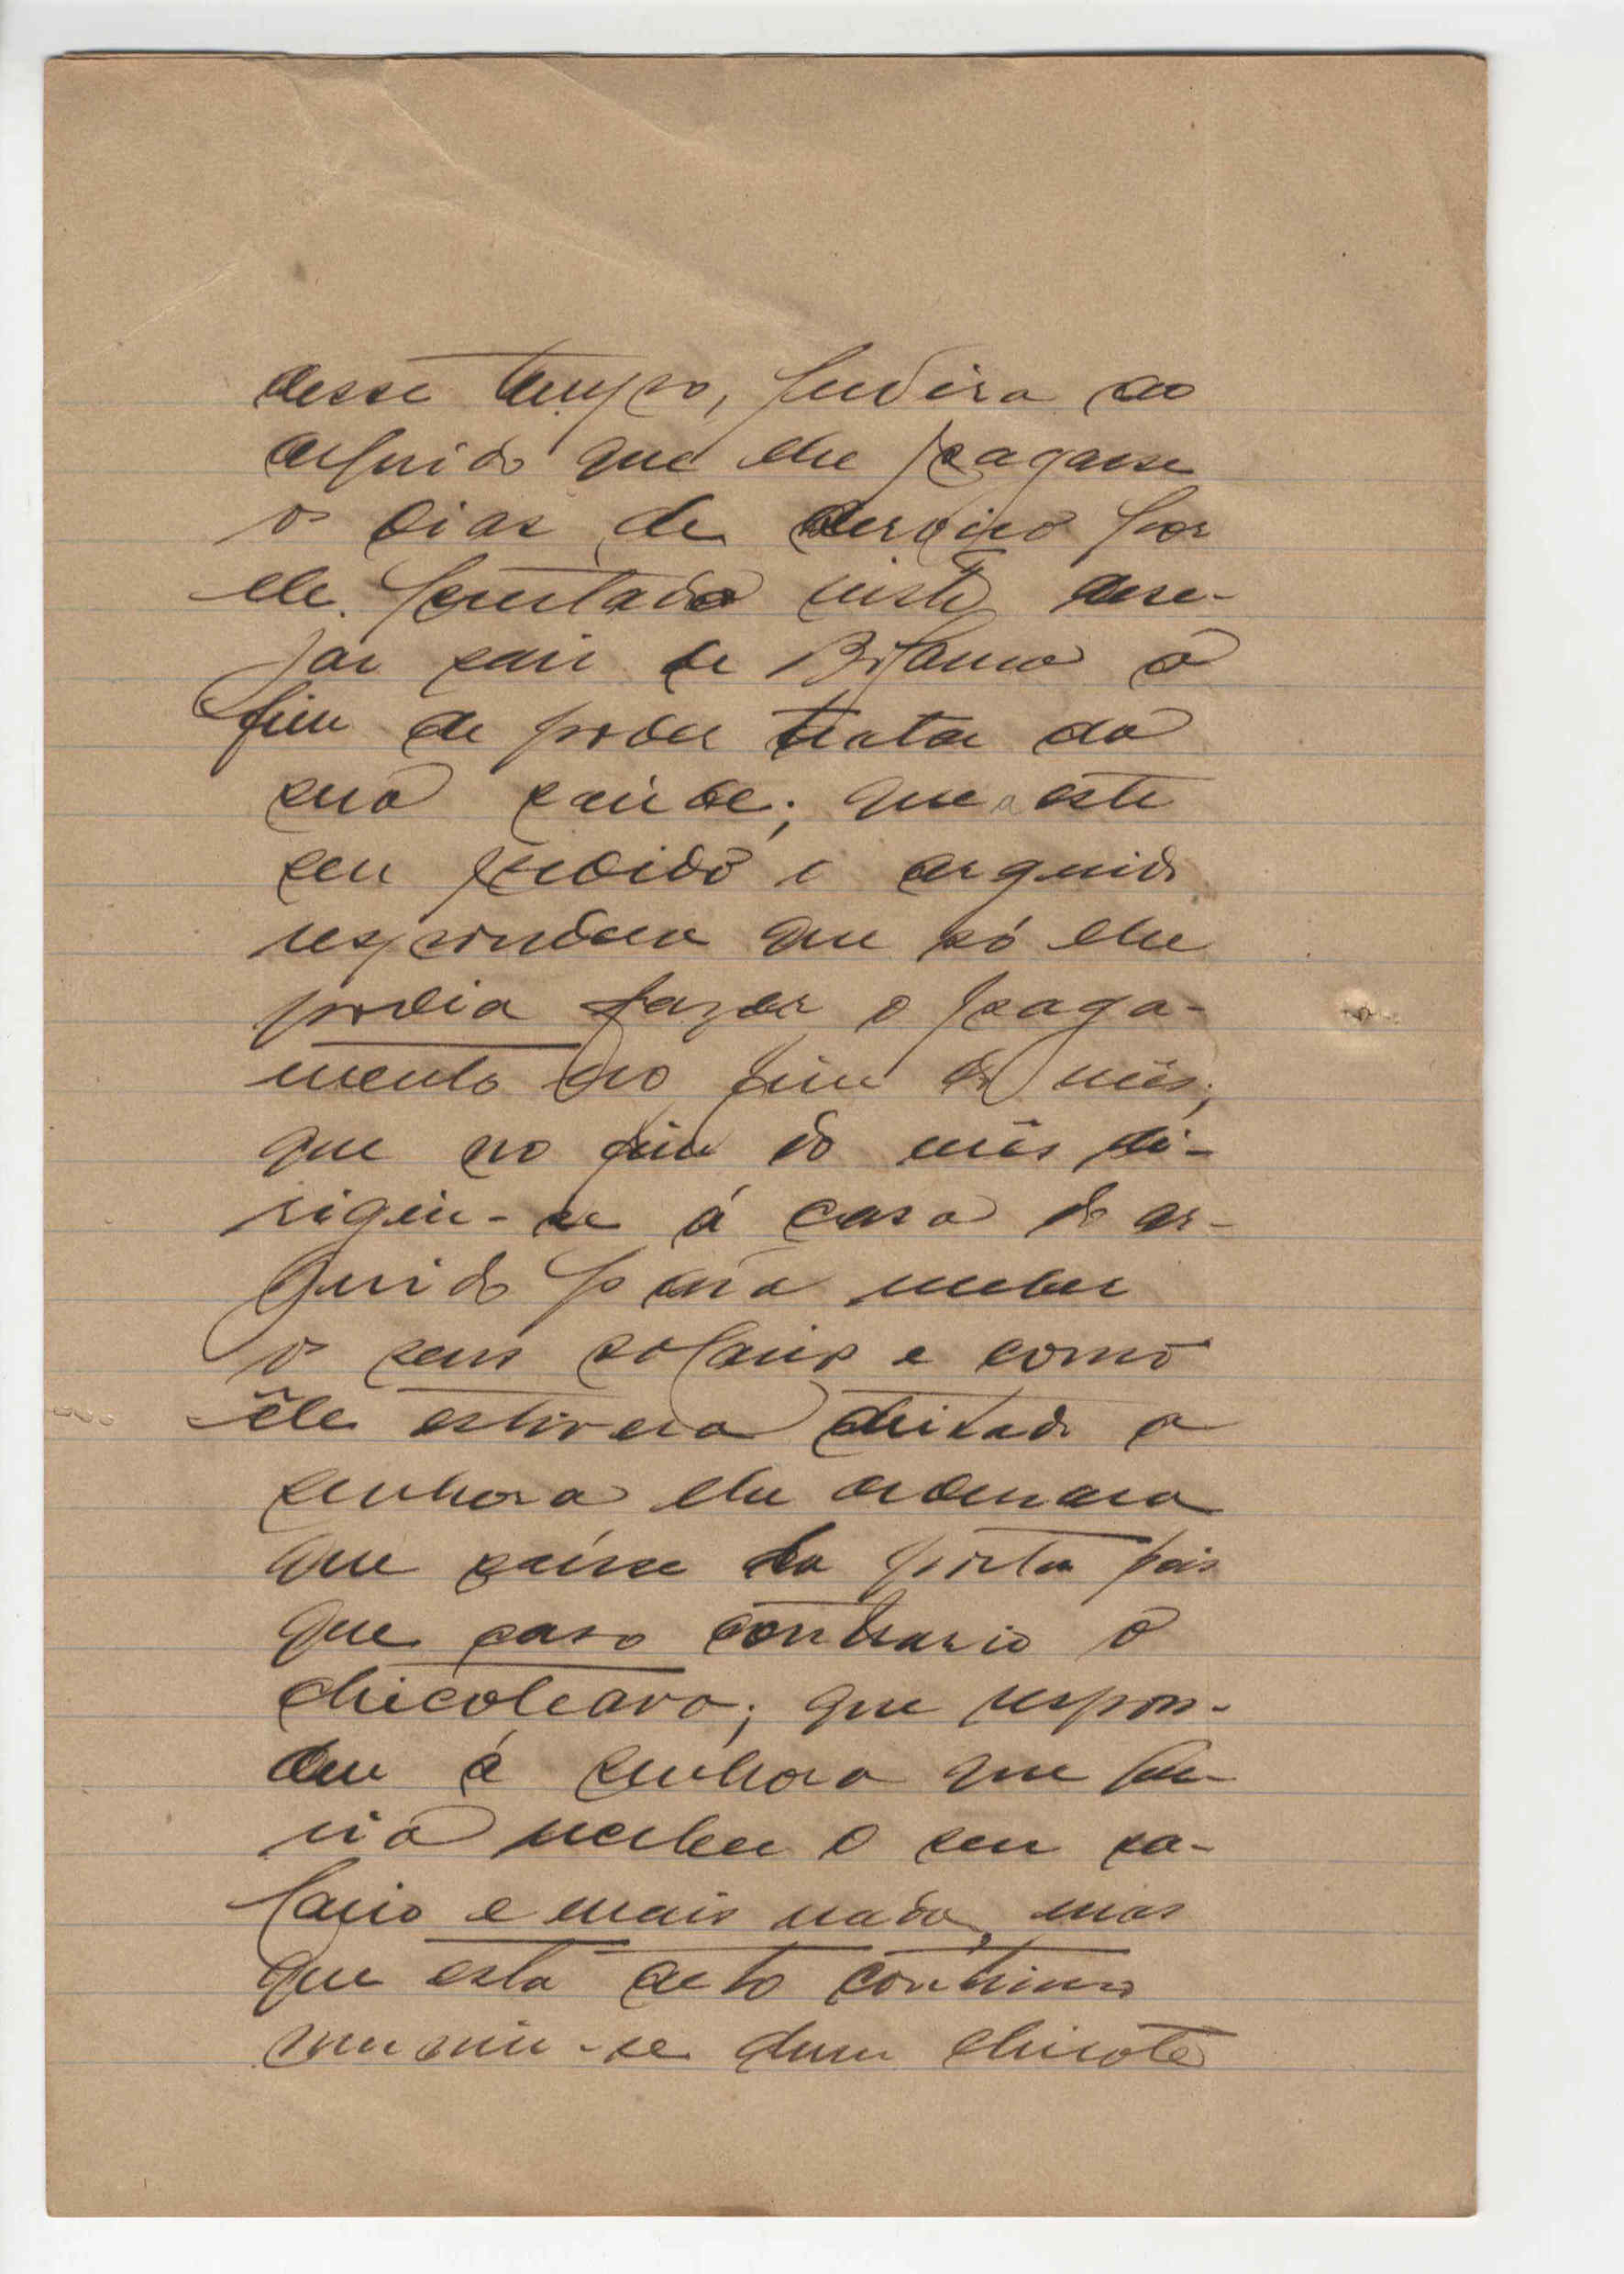 desse tempo, pedira ao
arguido que lhe pagasse
os dias de serviço por
ele prestado visto dese-
jar sair de Bolama a
fim de poder tratar da
sua saúde; que a este
seu pedido o arguido
respondera que só lhe
podia fazer o paga-
mento no fim do mês;
que no fim do mês di-
rigiu-se á casa do ar-
guido para receber
os seus salarios e como
êle estivera deitado a
senhora lhe ordenara
que saísse da porta pois
que caso contrario o
chicoteava; que respon-
deu á senhora que que-
ria receber o seu sa-
lario e mais nada, mas
que esta acto continuo
muniu-se dum chicote